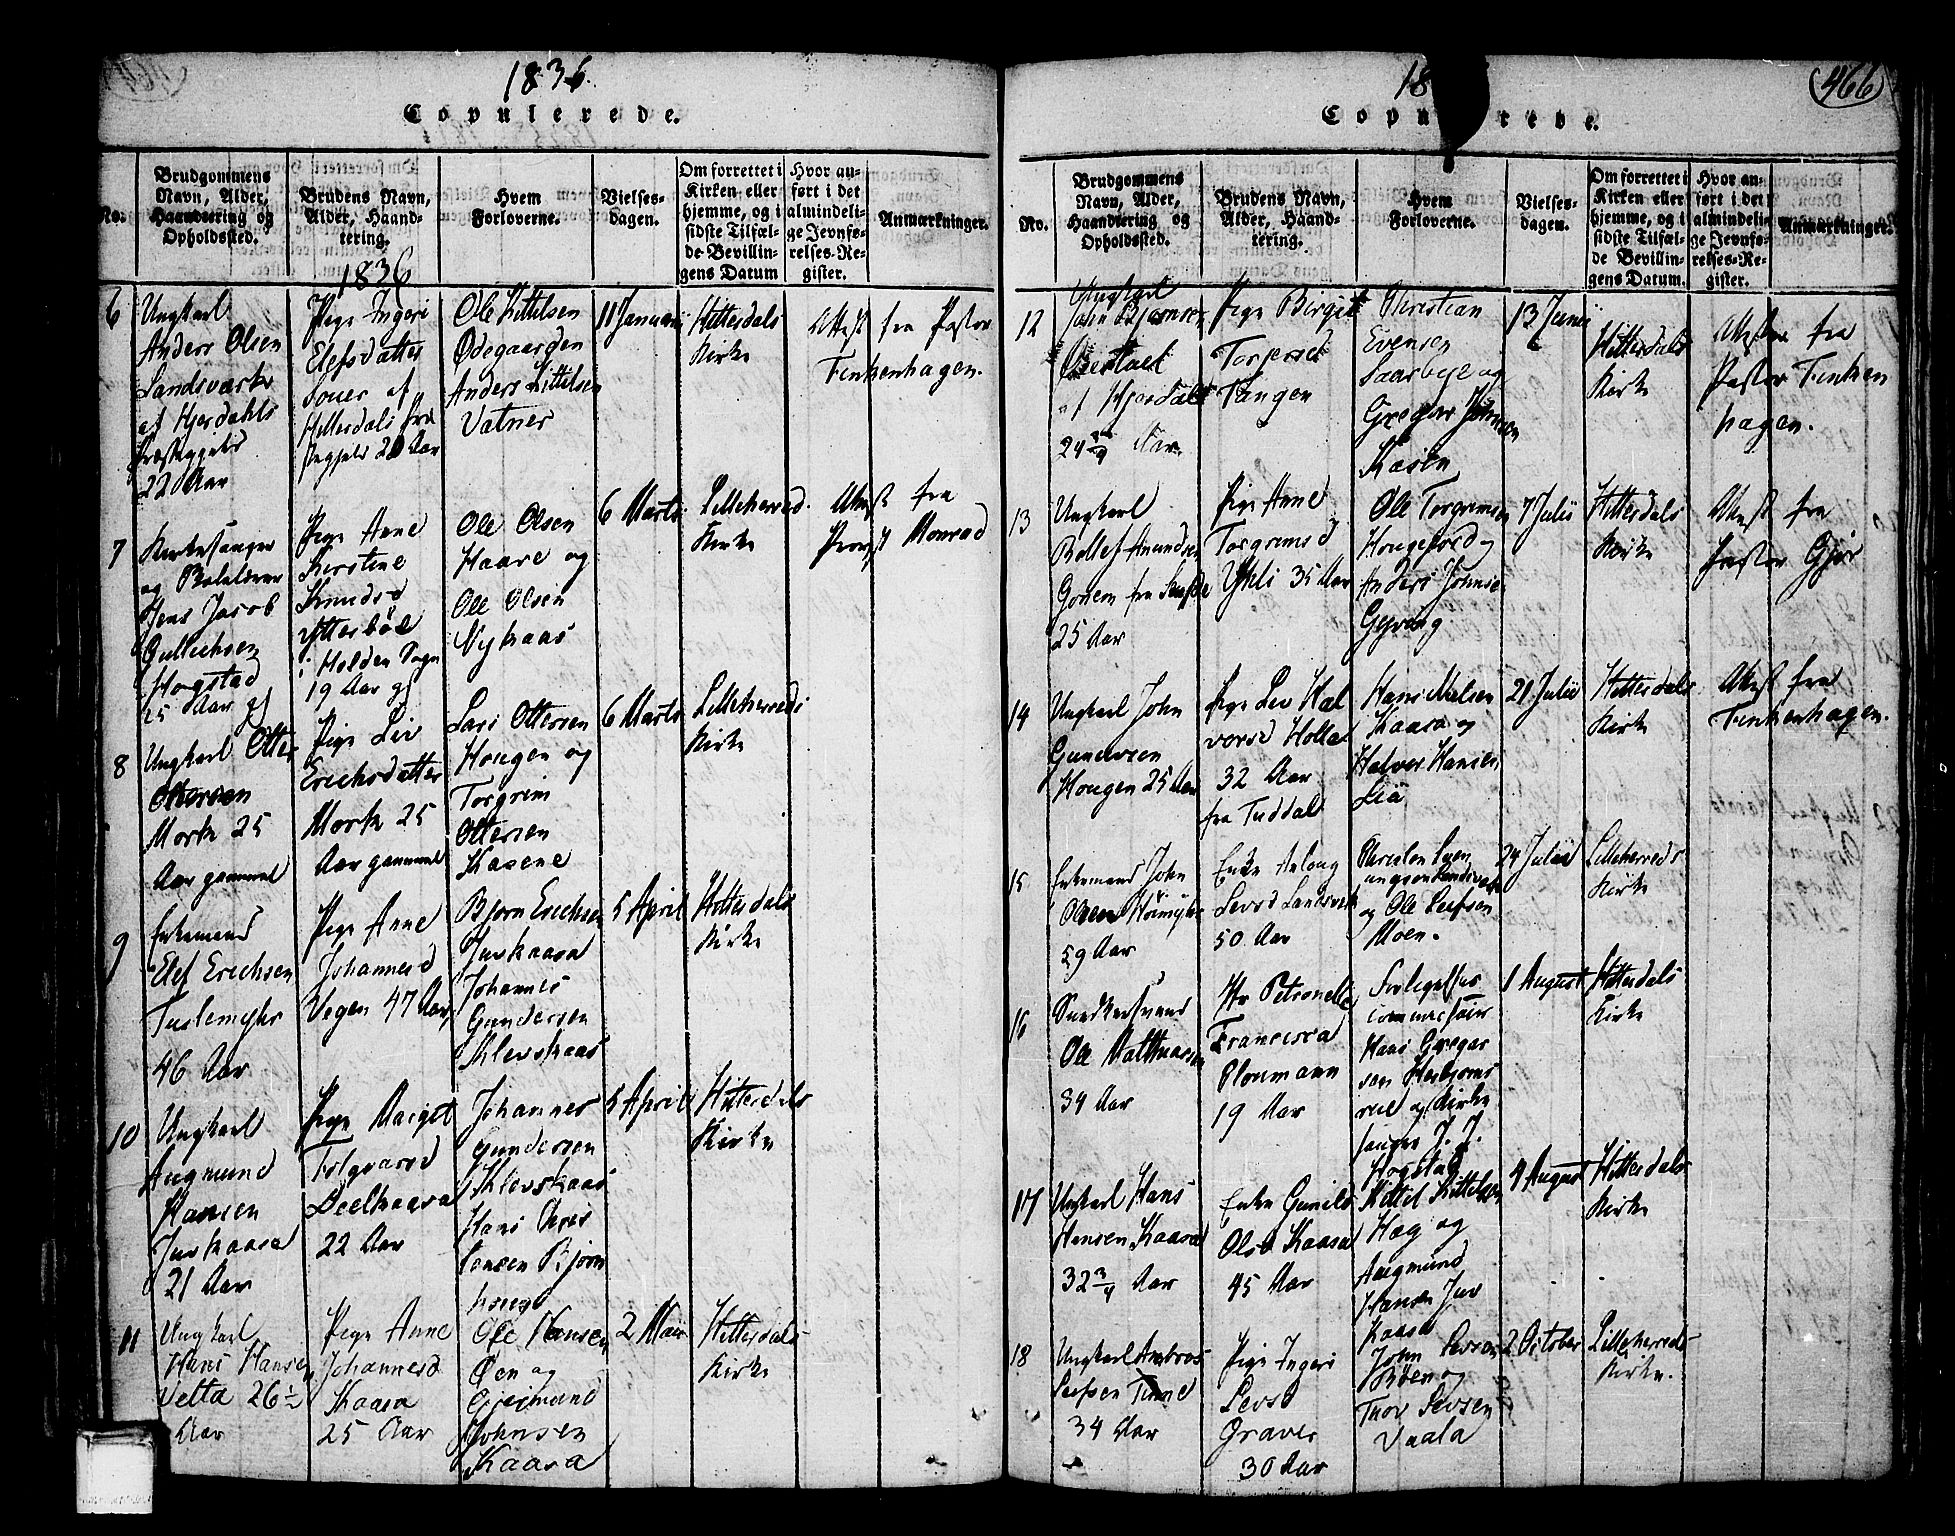 1836.
Copulerede.
No.
Brudgommens
Navn, Alder,
Haandtering og
Opholdssted.
Brudens Navn,
Alder, Haand-
tering.
Hvem
Forloverne.
Vielses-
dagen.
Om forrettet i
Kirken eller
hjemme, og i
sidste Tilfæl-
de Bevillin-
gens Datum
Hvor an-
ført i det
almindeli-
ge Jevnfø-
relses-Re-
gister.
Anmærkninger.
1836
6
Ungkarl
Anders Olsen
Landsværk
af Hjerdahls
Præstegjeld
22 Aar
Pige Ingeri
Elefsdatter
af
Hitterdals Præ
stegjeld 20 Aar
Ole Kittilsen
Ødegaarden
Anders Kittilsen
Vatner
11 Januarii
Hitterdals
Kirke
Attest fra Pastor
Finkenhagen.
7
Kirkesanger
og
Jens Jacob
Gullichsen
Hogstad
25 Aar gl
Pige Anne
Kirstine
Knudsd
Ytterböe
i Holden Sogn
19 Aar gl
Ole Olsen
Haare og
Ole Olsen
Nykaas
6 Marts
Lilleherred.
Kirke
Attest fra
Provst Monrad
8
Ungkarl Otter
Ottersen
Mork 25
Aar gammel
Pige Liv
Erichsdatter
Mork 25
Aar gammel
Lars Ottersen
Hougen og
Torgrim
Ottersen
Kasene
6 Marts
Lilleherreds
Kirke
9
Enkemand
Elef Erichsen
Tuslemyhr
46 Aar
Pige Anne
Johannesd
Vegen 47 Aar
Bjorn Erichsen
Juvkaasa
Johannes
Gundersen
Klevskaas
5 April
Hitterdals
Kirke
10
Ungkarl
Augmund
Hansen
Juvkaasa
21 Aar
Pige Marget
Folqvarsd
Deelkaasa
22 Aar
Johannes
Gundersen
Klevskaas
Hans
Bjorn
5 April
Hitterdals
Kirke
11
Ungkarl
Hans Hansen
Vetta 26½
Aar
Pige Anne
Johannesd
Kaasa
25 Aar
Ole Hansen
Øen og
Gjeimund
Johnsen
Kaasa
2 Mai
Hitterdals
Kirke
18
466
Copulerede.
No.
Brudgommens
Navn, Alder,
Haandtering og
Opholdssted.
Brudens Navn,
Alder, Haand-
tering.
Hvem
Forloverne.
Vielses-
dagen.
Om forrettet i
Kirken eller
hjemme, og i
sidste Tilfæl-
de Bevillin-
gens Datum.
Hvor an-
ført i det
almindeli-
ge Jevnfø-
relses-Re-
gister.
Anmærkninger.
12
Ungkarl
John Bjørnsen
af Hjerdal
24 Aar
Pige Birgit
Torjersd
Tangen
Christian
Evensen
Saarbye og
Gregar Johnsen
Kasen
13 Junii
Hitterdals
Kirke
Attest fra
Pastor Finken
hagen.
13
Ungkarl
Rollef Amundsen
25 Aar
Pige Anne
Torgrimsd
Ykli 35 Aar
Ole Torgrimsen
Hougefos og
Anders Johnsen
7 Julii
Hitterdals
Kirke
Attest fra
Pastor
14
Ungkarl John
Gundersen
Hougen 25 Aar
Pige Liv Hal
vorsd Holta
32 Aar
fra Tuddal
Hans Nielsen
Kaasa og
Halvor Hansen
Lia
21 Julii
Hitterdals
Kirke
Attest fra
Finkenhagen.
15
Enkemand John
Olsen
59 Aar
Enke Aslaug
Levsd Landsverk
50 Aar
og Ole Leifsen
Moen.
24 Julii
Lilleherreds
Kirke
16
Snedkersvend
Ole Matthiasen
34 Aar
Petronelle
Francisca
Ploumann
19 Aar
Forligelses
commissair
Hans Gregar
sen
og Kirke
sanger J. J.
Hogstad
1 August
Hitterdals
Kirke
17
Ungkarl Hans
Hansen Kaasa
32 3/4 Aar
Enke Gunild
Olsd Kaasa
45 Aar
Kittel Kittelsen
Hæg og
Augmund
Hansen Juv
kaasa
4 August
Hitterdals
Kirke
18
Ungkarl Ambros
Leifsen Tinne
34 Aar
Pige Ingeri
Levsd
Graver
30 Aar
John
og
Thov Levsen
Vaala
2 October
Lilleherreds
Kirke.